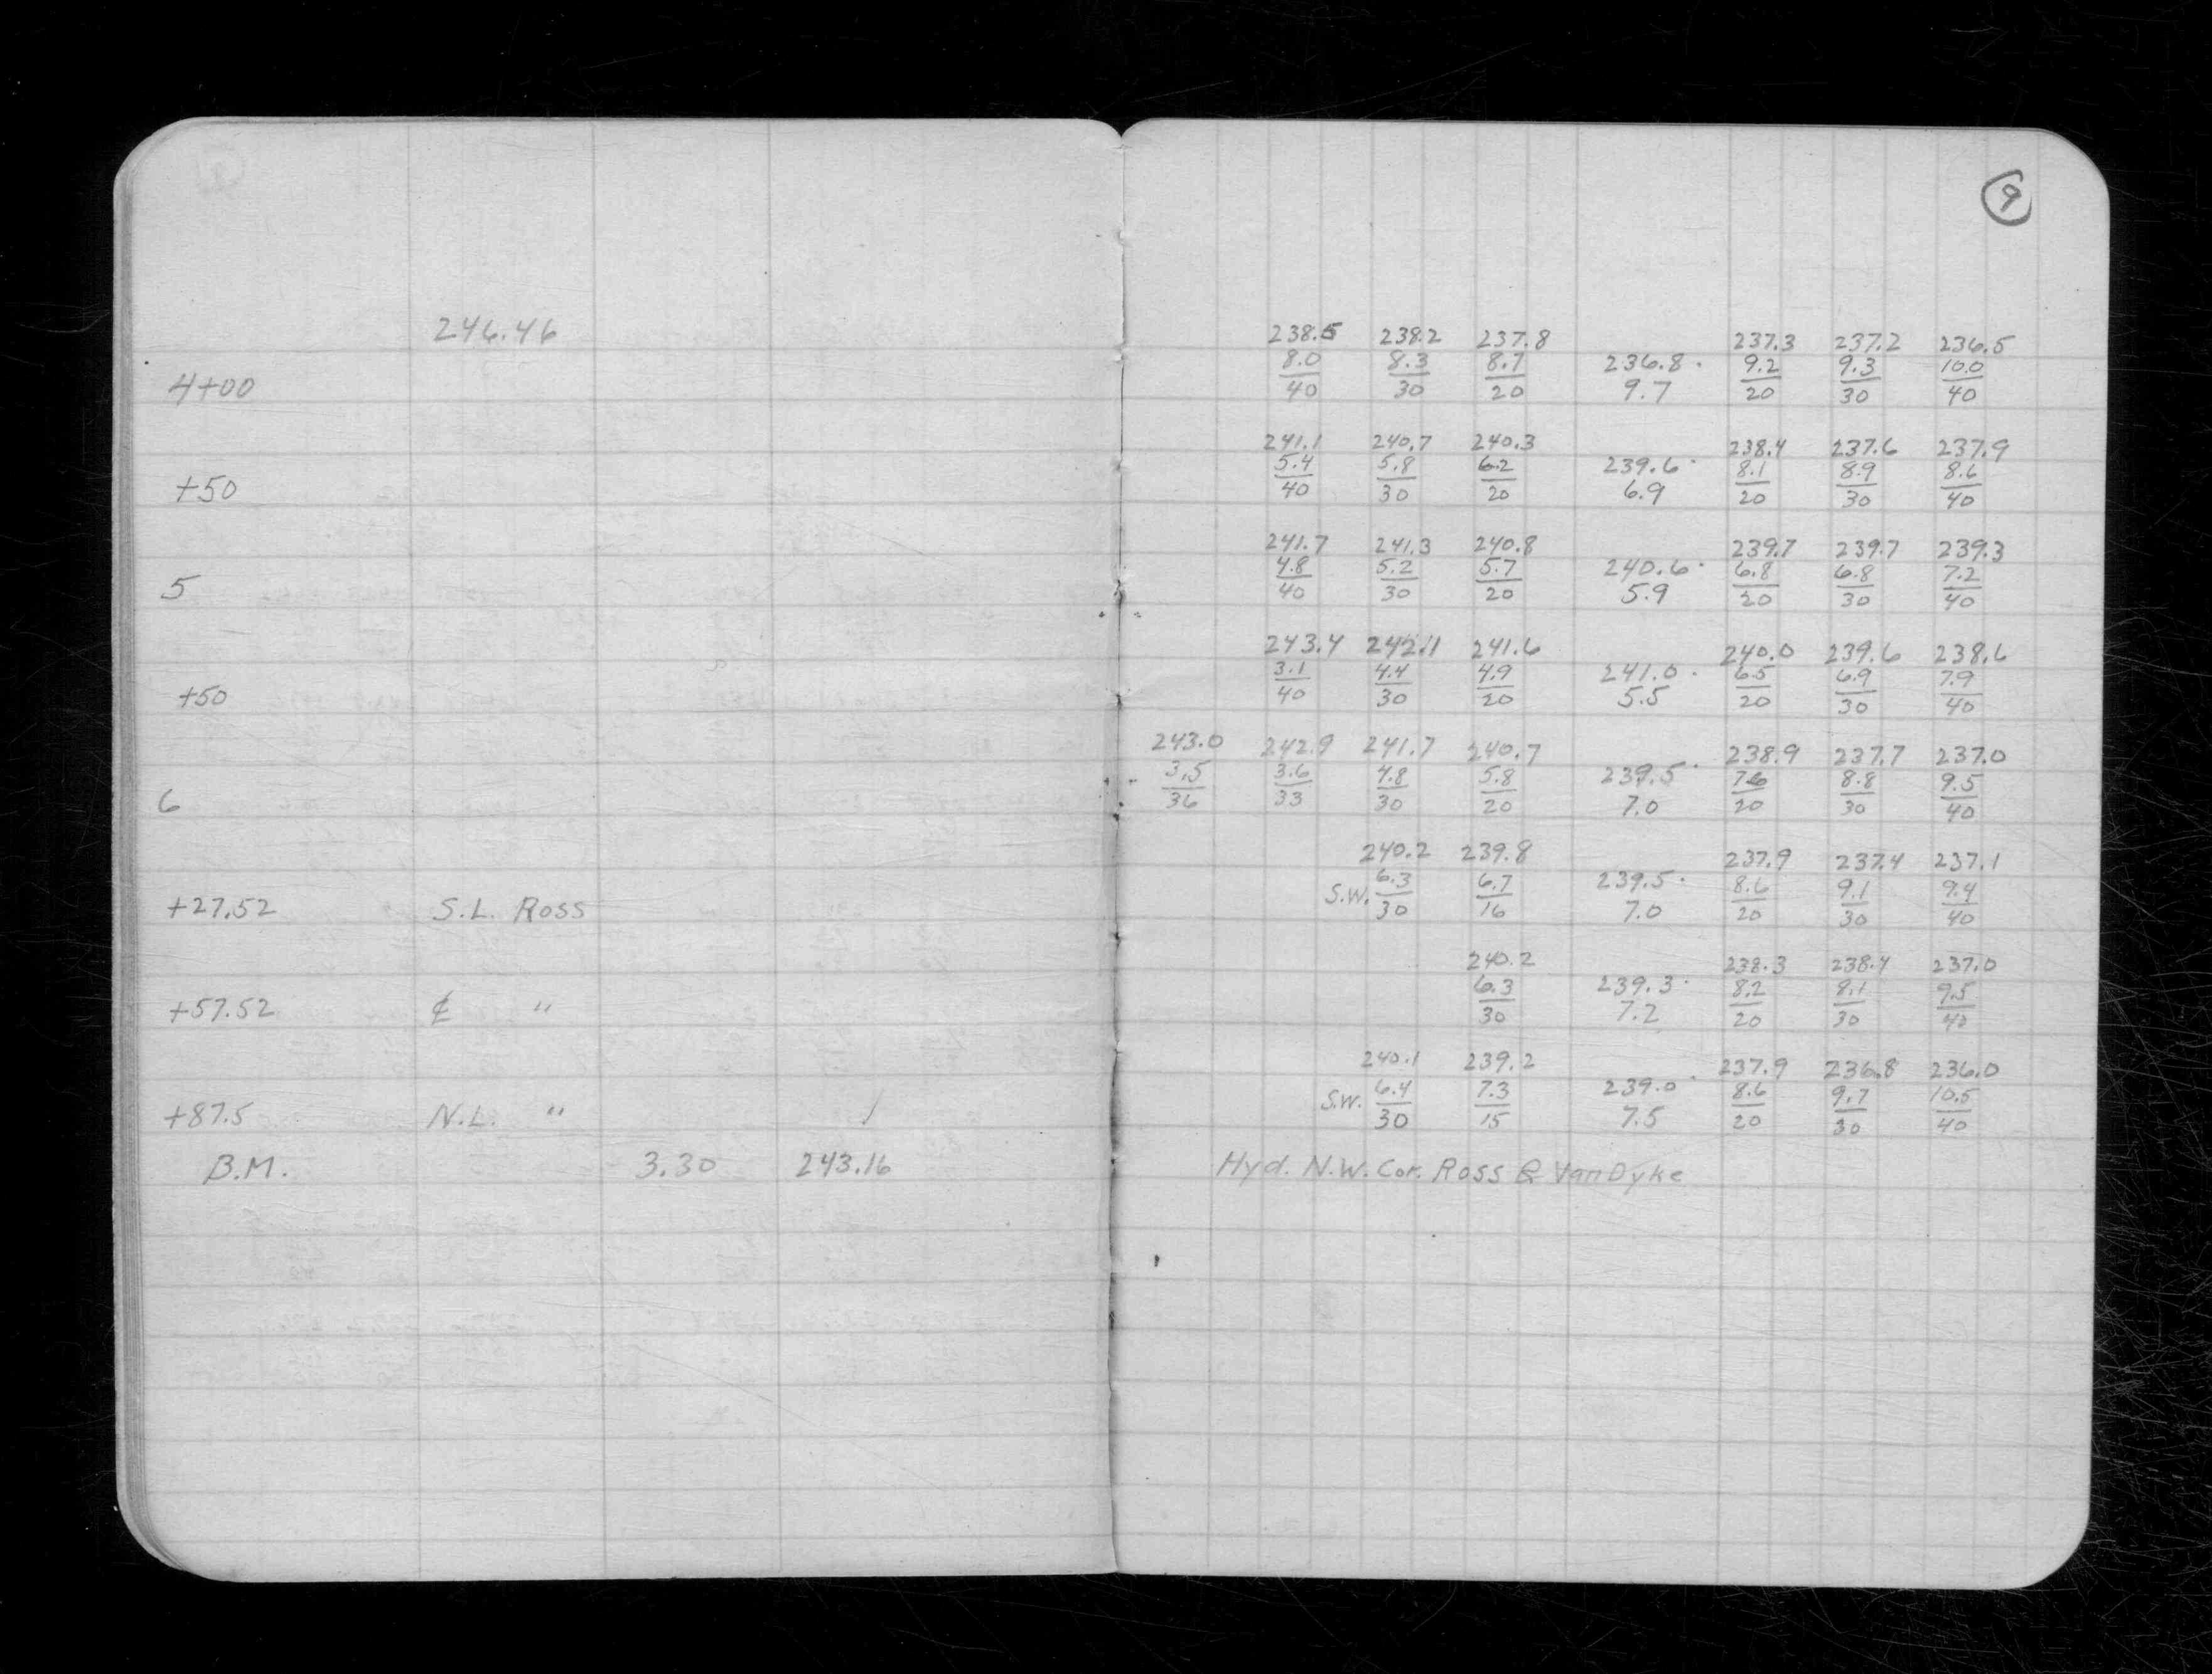 9
246.46
238.5 238.2 237.8 237.3 237.2 236.5
8.0 8.3 8.7 236.8 9.2 9.3 10.0
4+00 40 30 20 9.7 20 30 40
241.1 240.7 240.3 238.4 237.6 237.9
5.4 5.8 6.2 239.6 8.1 8.9 8.6
+50 40 30 20 6.9 20 30 40
241.7 241.3 240.8 239.7 239.7 239.3
4.8 5.2 5.7 240.6 6.8 6.8 7.2
5 40 30 20 5.9 20 30 40
243.4 242.1 241.6 240.0 239.6 238.6
3.1 4.4 4.9 241.0 6.5 6.9 7.9
+50 40 30 20 5.5 20 30 40
243.0 242.9 241.7 240.7 238.9 237.7 237.0
3.5 3.6 4.8 5.8 239.5 7.6 8.8 9.5
6 36 33 30 20 7.0 20 30 40
240.2 239.8 237.9 237.4 237.1
S.W. 6.3 6.7 239.5 8.6 9.1 9.4
+27.52 S.L. Ross 30 16 7.0 20 30 40
240.2 238.3 238.4 237.0
6.3 239.3 8.2 8.1 9.5
+57.52 ₵ " 30 7.2 20 30 40
240.1 239.2 237.9 236.8 236.0
S.W. 6.4 7.3 239.0 8.6 9.7 10.5
+87.5 N.L. " 30 15 7.5 20 30 40
B.M. 3.30 243.16 Hyd. N.W. Cor. Ross & VanDyke